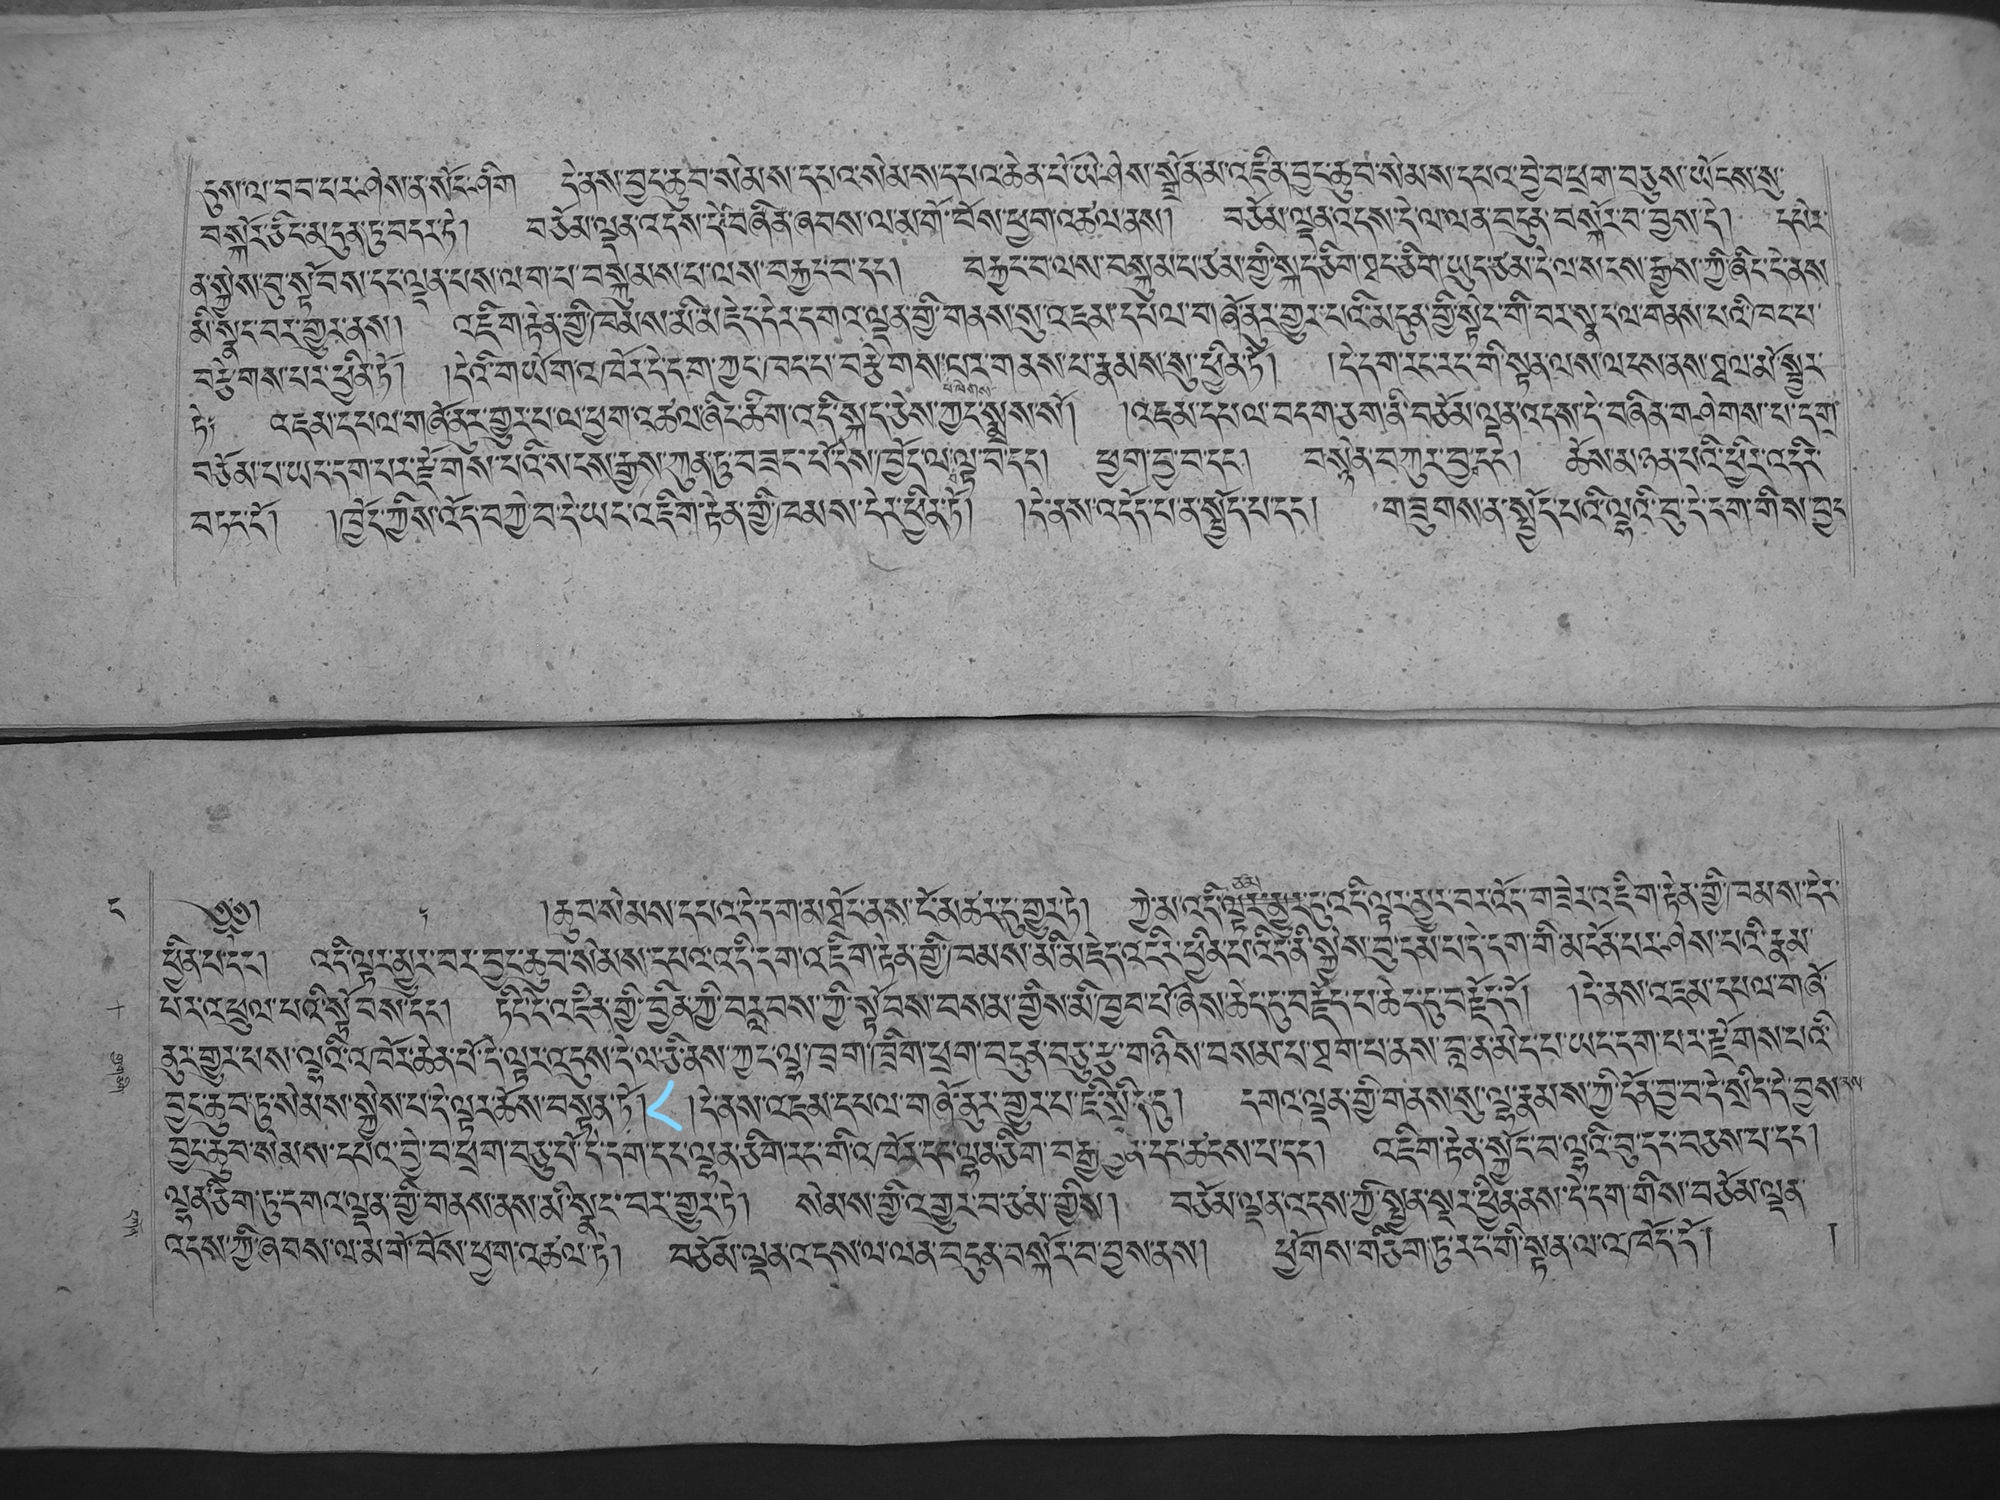 དུས་ལ་བབ་པར་ཤེས་ན་སོང་ཤིག །དེ་ནས་བྱང་ཆུབ་སེམས་དཔའ་སེམས་དཔའ་ཆེན་པོ་ཡེ་ཤེས་སྒྲོན་མ་འཛིན་བྱང་ཆུབ་སེམས་དཔའ་བྱེ་བ་ཕྲག་བཅུས་ཡོངས་སུ་
བསྐོར་ཅིང་མདུན་དུ་བདར་ཏེ། བཅོམ་ལྡན་འདས་དེ་བཞིན་ཞབས་ལ་མགོ་བོས་ཕྱག་འཚལ་ནས། བཅོམ་ལྡན་འདས་དེ་ལ་ལན་བདུན་བསྐོར་བ་བྱས་ཏེ། དཔེར་
ན་སྐྱེས་བུ་སྟོབས་དང་ལྡན་པས་ལག་པ་བསྐུམས་པ་ལས་བརྐྱང་བ་དང། བརྐྱང་བ་ལས་བསྐུམ་པ་ཙམ་གྱི་སྐད་ཅིག་ཐང་ཅིག་ཡུད་ཙམ་དེ་ལ་སངས་རྒྱས་ཀྱི་ཞིང་དེ་ནས་
མི་སྣང་བར་གྱུར་ནས། འཇིག་རྟེན་གྱི་ཁམས་མི་མཇེད་དེར་དགའ་ལྡན་གྱི་གནས་སུ་འཇམ་དཔལ་གཞོནུར་གྱུར་པའི་མདུན་གྱི་སྟེང་གི་བར་སྣང་ལ་གནས་པའི་ཁང་པ་
བརྩེགས་པར་ཕྱིན་ཏོ། །དེའི་གཡོག་འཁོར་དེ་དག་ཀྱང་ཁང་པ་བརྩེགས་པར་གནས་པ་རྣམས་སུ་ཕྱིན་ཏོ། །དེ་དག་རང་རང་གི་སྟན་ལས་ལངས་ནས་ཐལ་མོ་སྦྱར་
ཏེ། འཇམ་དཔལ་གཞོནུར་གྱུར་པ་ལ་ཕྱག་འཚལ་ཞིང་ཚིག་འདི་སྐད་ཅེས་ཀྱང་སྨྲས་སོ། །འཇམ་དཔལ་བདག་ཅག་ནི་བཅོམ་ལྡན་འདས་དེ་བཞིན་གཤེགས་པ་དགྲ་
བཅོམ་པ་ཡང་དག་པར་རྫོགས་པའི་སངས་རྒྱས་ཀུན་ཏུ་བཟང་པོ་དེས་ཁྱོད་ལ་ལྟ་བ་དང། ཕྱག་བྱ་བ་དང། བསྙེན་བཀུར་བྱ་དང། ཆོས་མཉན་པའི་ཕྱིར་འདིར་
བཏང་ངོ། །ཁྱོད་ཀྱིས་འོད་བཀྱེ་བ་དེ་ཡང་འཇིག་རྟེན་གྱི་ཁམས་དེར་ཕྱིན་ཏོ། །དེ་ནས་འདོད་པ་ན་སྤྱོད་པ་དང། གཟུགས་ན་སྤྱོད་པའི་ལྷའི་བུ་དེ་དག་གིས་བྱང་
༄༅། །ཆུབ་སེམས་དཔའ་དེ་དག་མཐོང་ནས་ངོ་མཚར་དུ་གྱུར་ཏེ། ཀྱེ་མ་འདི་ལྟར་མྱུར་དུ་འདི་ལྟར་མྱུར་བར་འོད་གཟེར་འཇིག་རྟེན་གྱི་ཁམས་དེར་
ཕྱིན་པ་དང། འདི་ལྟར་མྱུར་བར་བྱང་ཆུབ་སེམས་དཔའ་འདི་དག་འཇིག་རྟེན་གྱི་ཁམས་མི་མཇེད་འདིར་ཕྱིན་པ་འདི་ནི་སྐྱེས་བུ་དམ་པ་དེ་དག་གི་མངོན་པར་ཤེས་པའི་རྣམ་
པར་འཕྲུལ་པའི་སྟོབས་དང། ཏིང་ངེ་འཛིན་གྱི་བྱིན་ཀྱི་བརླབས་ཀྱི་སྟོབས་བསམ་གྱིས་མི་ཁྱབ་པོ་ཞེས་ཆེད་དུ་བརྗོད་པ་ཆེད་དུ་བརྗོད་དོ། །དེ་ནས་འཇམ་དཔལ་གཞོ་
ནུར་གྱུར་པས་ལྷའི་འཁོར་ཆེན་པོ་དེ་ལྟར་འདུས་དེ་ལ་ཅི་ནས་ཀྱང་ལྷ་ཁྲག་ཁྲིག་ཕྲག་བདུན་བཅུ་རྩ་གཉིས་བསམ་པ་ཐག་པ་ནས་བླ་ན་མེད་པ་ཡང་དག་པར་རྫོགས་པའི་
བྱང་ཆུབ་ཏུ་སེམས་སྐྱེས་པ་དེ་ལྟར་ཆོས་བསྟན་ཏོ། །དེ་ནས་འཇམ་དཔལ་གཞོནུར་གྱུར་པ་ཇི་སྲིད་དུ། དགའ་ལྡན་གྱི་གནས་སུ་ལྷ་རྣམས་ཀྱི་དོན་བྱ་བ་དེ་སྲིད་དེ་བྱས་ནས
བྱང་ཆུབ་སེམས་དཔའ་བྱེ་བ་ཕྲག་བཅུ་པོ་དེ་དག་དང་ལྷན་ཅིག་རང་གི་འཁོར་དང་ལྷན་ཅིག་བརྒྱ་བྱིན་དང་ཚངས་པ་དང། འཇིག་རྟེན་སྐྱོང་བ་ལྷའི་བུ་དང་བཅས་པ་དང།
ལྷན་ཅིག་ཏུ་དགའ་ལྡན་གྱི་གནས་ནས་མི་སྣང་བར་གྱུར་ཏེ། སེམས་ཀྱི་འགྱུར་བ་ཙམ་གྱིས། བཅོམ་ལྡན་འདས་ཀྱི་སྤྱན་སྔར་ཕྱིན་ནས་དེ་དག་གིས་བཅོམ་ལྡན་
འདས་ཀྱི་ཞབས་ལ་མགོ་བོས་ཕྱག་འཚལ་ཏེ། བཅོམ་ལྡན་འདས་ལ་ལན་བདུན་བསྐོར་བ་བྱས་ནས། ཕྱོགས་གཅིག་ཏུ་རང་གི་སྟན་ལ་འཁོད་དོ། །